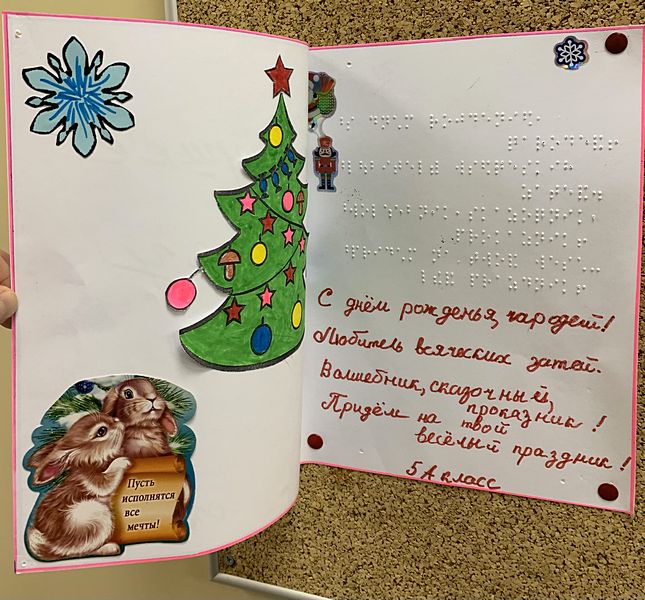 Пусть
исполнятся
все
мечты!
С днём рожденья, чародей!
Любитель всяческих затей.
Волшебник, сказочный,
проказник!
Придём на твой
весёлый праздник!
5А класс